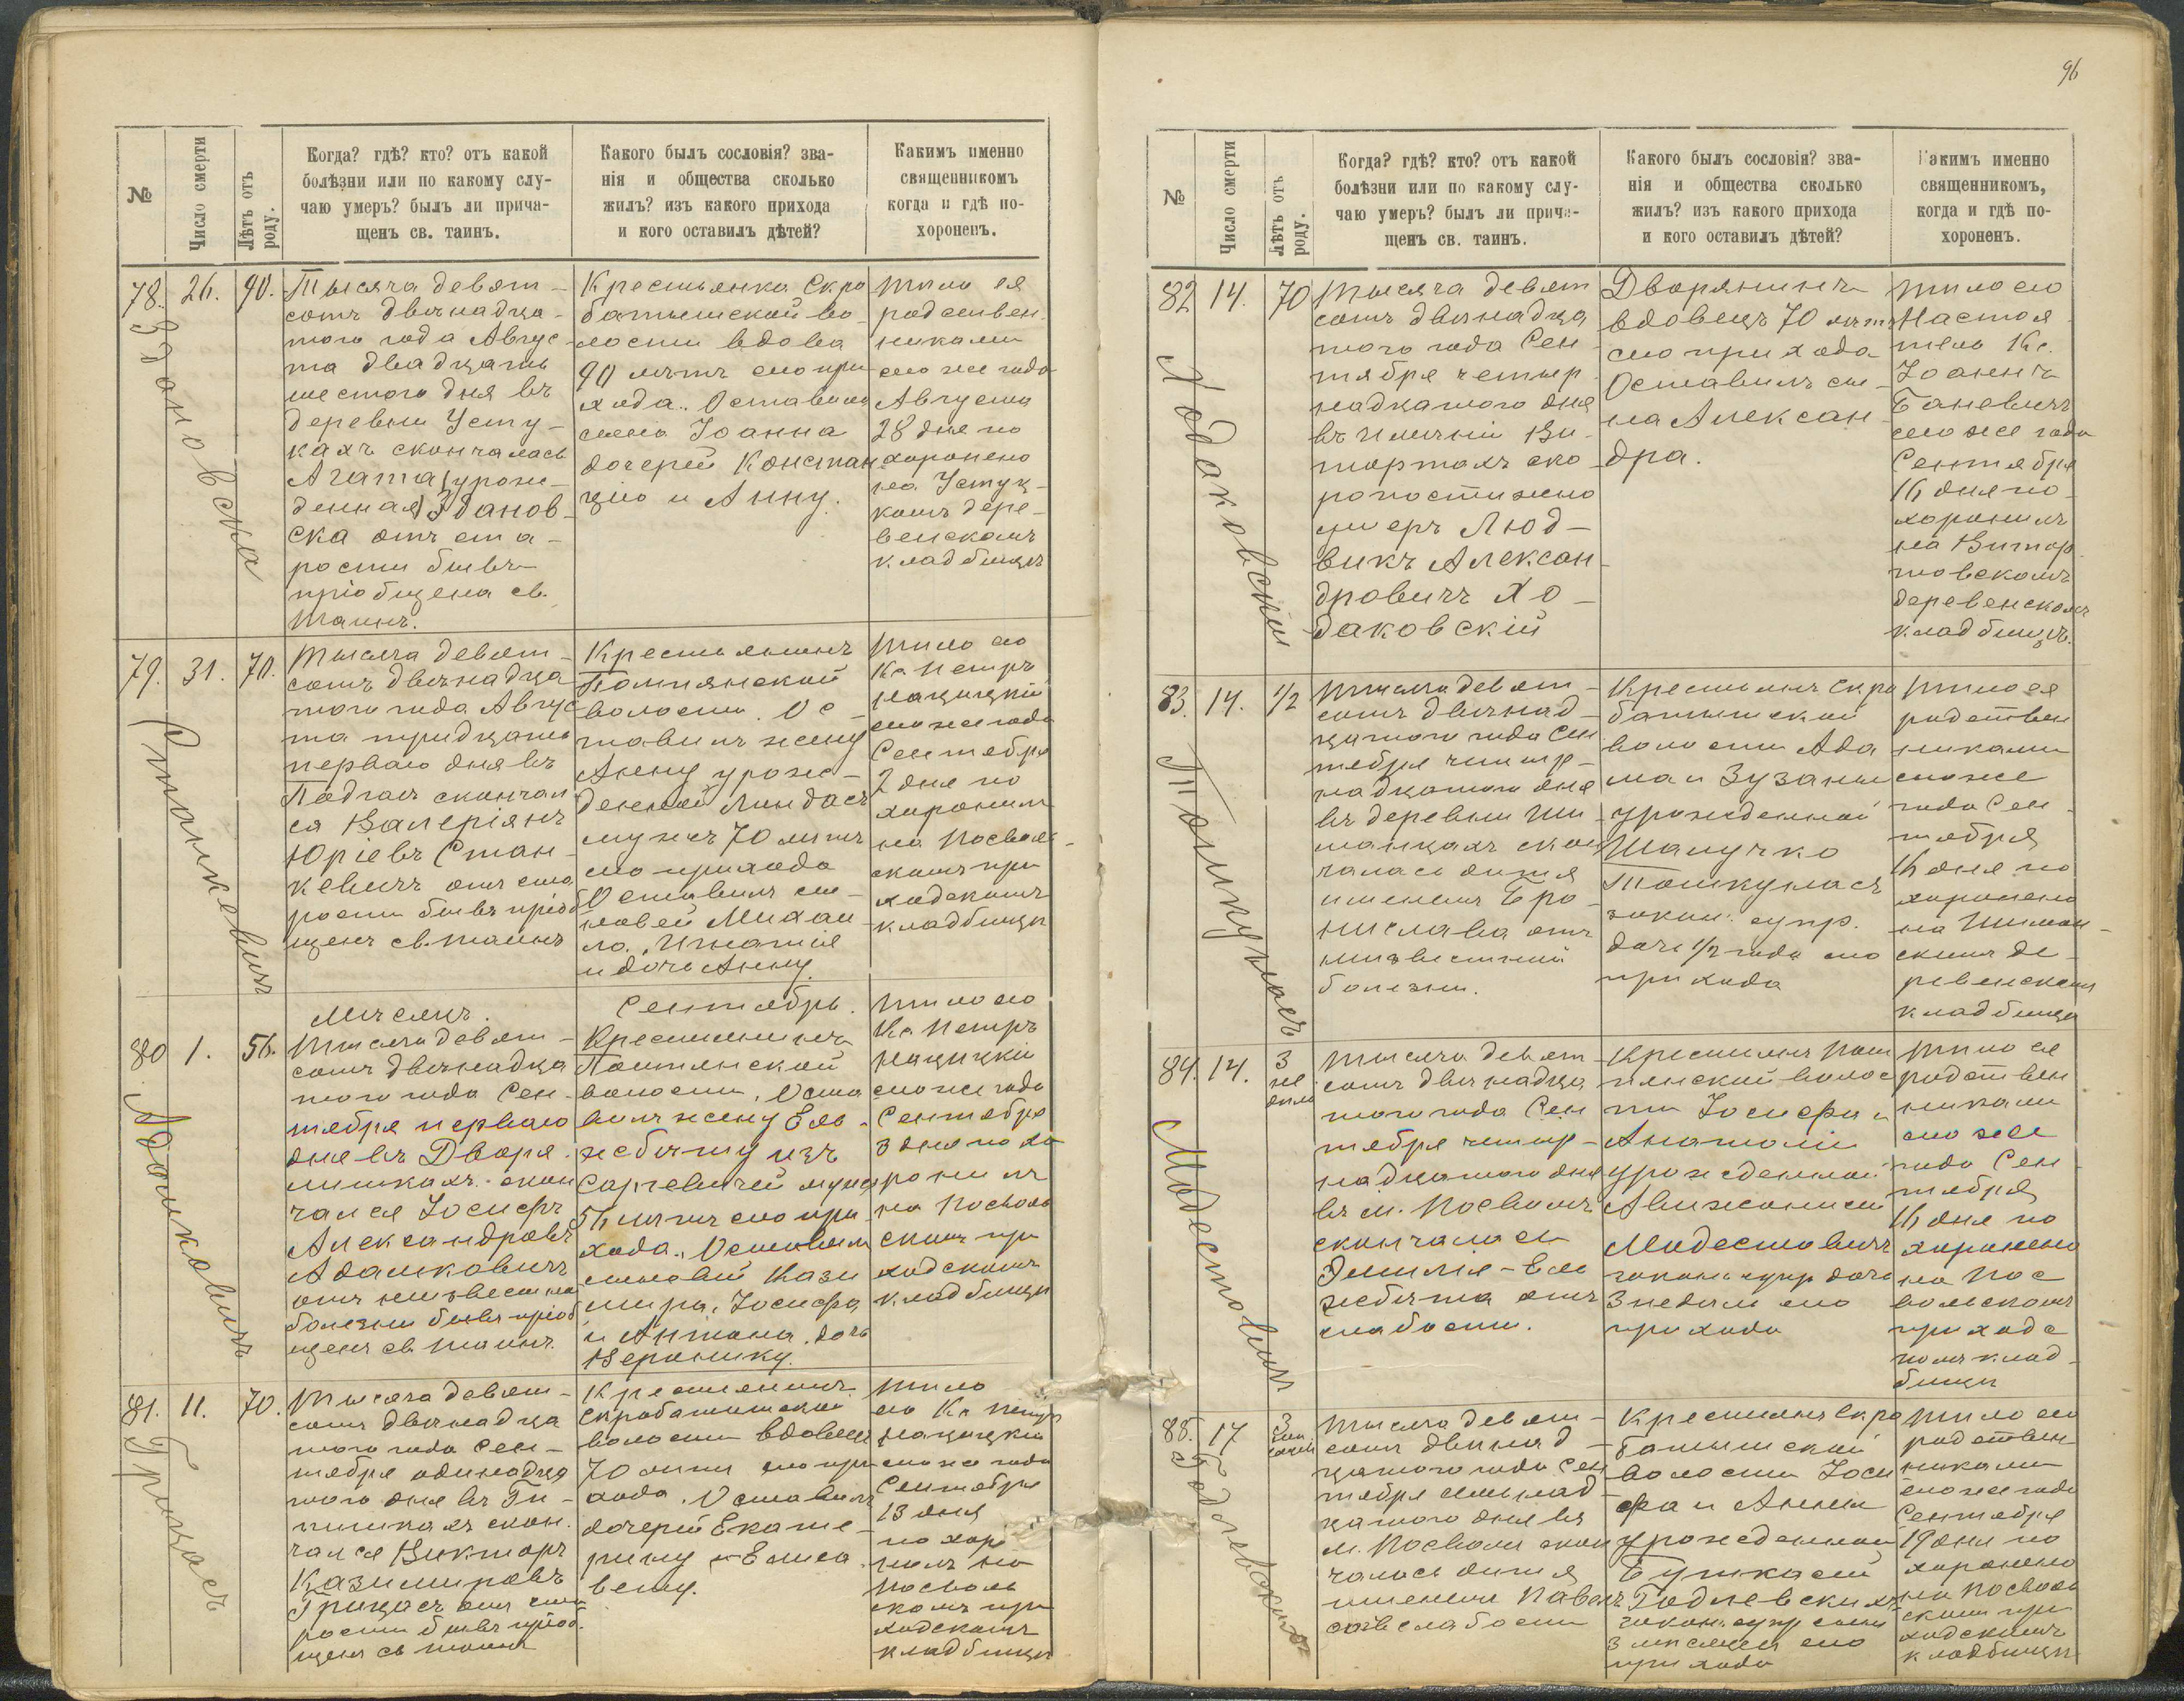 96
№
Число смерти
Лѣтъ отъ роду.
Когда? гдѣ? кто? отъ какой
болѣзни или по какому слу-
чаю умеръ? былъ ли прича-
щенъ св. таинъ.
Какого былъ сословія? зва-
нія и общества сколько
жилъ? изъ какого прихода
и кого оставилъ дѣтей?
Какимъ именно
священникомъ
когда и гдѣ по-
хороненъ.
78.
26.
90.
Здановска
Тысяча девят-
сотъ двѣнадца-
таго года Авгус-
та двадцать
шестого дня въ
деревни Усту-
кахъ скончалась
Агата урож-
денная Зданов-
ска отъ ста-
рости бывъ
пріобщена св.
Таинъ.
Крестьянка Скро
батишской во-
лости вдова
90 лѣтъ сего при
хода. Оставила
сына Іоанна
дочерей Констан
цію и Анну.
Тѣло ея
родствен.
никами
сего же года
Августа
28 дня по
хоронено
на Устук-
комъ дере-
венскомъ
кладбищѣ
79.
31.
70.
Станкевичъ
Тысяча девят-
сотъ двѣнадца
таго года Авгус
та тридцать
перваго дня въ
скончал
ся Валеріянъ
Юріевъ Стан-
кевичъ отъ ста
рости бывъ пріоб
щенъ св. таинъ
Крестьянинъ
волости. Ос-
тавилъ жену
Анну урож-
денной Линдасъ
мужъ 70 лѣтъ
сего прихода
Оставилъ сы-
новей Михаи
ла, Игнатія
и дочь Анну.
Тѣло его
Кс. Петръ
сего же года
Сентября
2 дня по
хоронилъ
на Посволь-
скомъ при
ходскомъ
кладбищѣ
Мѣсяцъ.
Сентябрь.
80
1.
56.
Адамковичъ
Тысяча девят-
сотъ двѣнадца
таго года Сен-
тября перваго
дня въ Дворя-
лишкахъ скон
чался Іосифъ
Александровъ
Адамковичъ
отъ неизвестной
болезни бывъ пріоб
щенъ св. таинъ.
Крестьянинъ
волости. Оста
вилъ жену Ель-
жбѣту изъ
мужъ
56 лѣтъ сего при
хода. Оставилъ
сыновей Кази
мира, Іосифа
и Антона, дочь
Веронику.
Тѣло его
Кс. Петръ
сего же года
Сентября
3 дня по хо
ронилъ
на Посволь
скомъ при
ходскомъ
кладбищѣ
81.
11.
70.
Грицасъ
Тысяча девят-
сотъ двѣнадца
таго года Сен-
тября одинадца
таго дня въ Ги-
скон.
чался Викторъ
Казимировъ
Грицасъ отъ ста
рости бывъ пріоб.
щенъ св таинъ
Крестьянинъ
скробатишской
волости вдовецъ
70 лѣтъ сего при
хода. Оставилъ
дочерей Екате-
рину и Елиса
вету.
Тѣло
его Кс Петръ
сего же года
Сентября
13 дня
по хоро
нилъ на
Посволь
скомъ при
ходскомъ
кладбищѣ
№
Число смерти
Лѣтъ отъ роду.
Когда? гдѣ? кто? отъ какой
болѣзни или по какому слу-
чаю умеръ? былъ ли прича-
щенъ св. таинъ.
Какого былъ сословія? зва-
нія и общества сколько
жилъ? изъ какого прихода
и кого оставилъ дѣтей?
Какимъ именно
священникомъ,
когда и гдѣ по-
хороненъ.
82
14.
70
Ходаковскій
Тысяча девят
сотъ двѣнадца
таго года Сен-
тября четыр
надцатого дня
въ имѣніи Ви-
тортахъ ско
ропостижно
умеръ Люд-
викъ Алексан-
дровичъ Хо-
даковскій
Дворянинъ
вдовецъ 70 лѣтъ
сего прихода
Оставилъ сы-
на Алексан-
дра.
Тѣло его
Настоя
тель Кс.
Іоаннъ
Баневичъ
сего же года
Сентября
16 дня по-
хоронилъ
на Витор
товскомъ
деревенскомъ
кладбищѣ.
83.
14.
1/2
Тысяча девят-
сотъ двѣнад-
цатого года Сен
тября четыр-
надцатого дня
въ деревни Ши-
скон
чалась дитя
именемъ Бро-
нислава отъ
неизвестной
болезни.
Крестьянъ Скро
батишской
волости Ада
ма и Зузаны
урожденной
закон. супр.
дочь 1/2 года сего
прихода
Тѣло ея
родствен
никами
сего же
года Сен-
тября
16 дня по
хоронено
на Шиман-
скимъ де-
ревенскомъ
кладбищѣ
84.
14.
3
не
дели
Модестовичъ
Тысяча девят-
сотъ двѣнадца
таго года Сен
тября четыр-
надцатого дня
въ м. Посволѣ
скончалась
Эмилія-Ель
жбѣта отъ
слабости.
Крестьянъ Пом
пянской волос
ти Іосифа и
урожденной
Модестовичъ
закон. супр дочь
3 недели сего
прихода
Тѣло ея
родствен
никами
сего же
года Сен-
тября
16 дня по
хоронено
на Пос
вольскомъ
приходс
комъ клад-
бищѣ
85.
17
3 мѣсяцевъ
Тысяча девят-
сотъ двѣнад-
цатого года Сен
тября семнад-
цатого дня въ
м. Посволѣ скон
чалась дитя
именемъ Павелъ
отъ слабости
Крестьянъ Скро
батишской
волости Іоси
фа и Анны
урожденной
Годлевскихъ
закон. супр сынъ
3 мѣсяцевъ сего
прихода
Тѣло его
родствен
никами
сего же года
Сентября
19 дня по
хоронено
на Посволь
скомъ при
ходскомъ
кладбищѣ